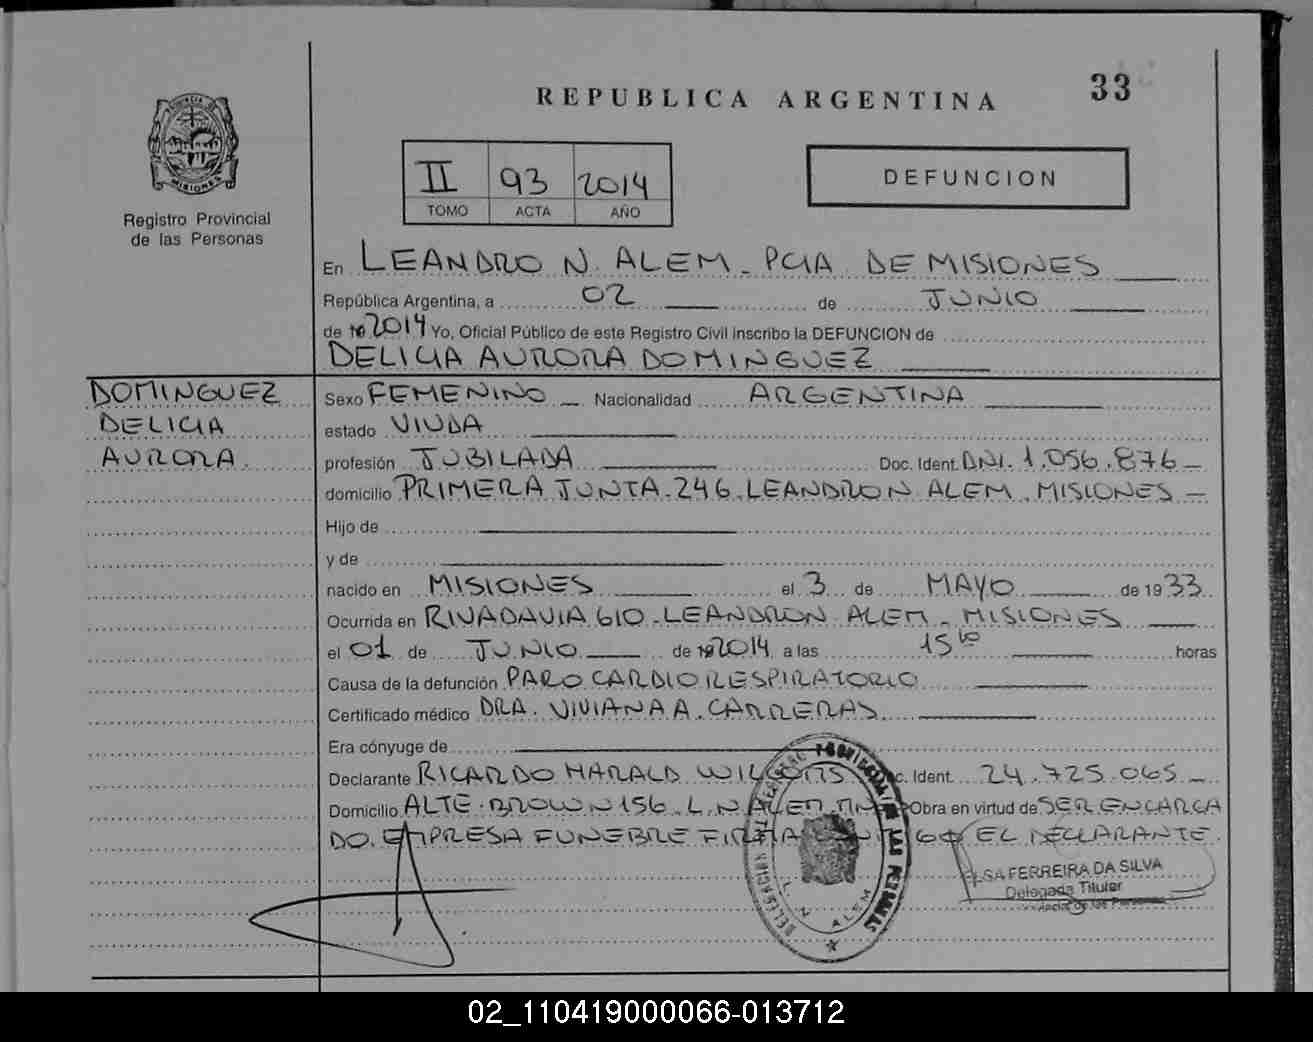 33
REPUBLICA ARGENTINA
PROVINCIA DE
MISIONES
Registro Provincial
de las Personas
II 93 2014
TOMO ACTA AÑO
DEFUNCION
En LEANDRO N. ALEM - PCIA DE MISIONES
República Argentina, a 02 de JUNIO
de 19 2014 Yo, Oficial Público de este Registro Civil inscribo la DEFUNCION de
DELICIA AURORA DOMINGUEZ
DOMINGUEZ
DELICIA
AURORA
Sexo FEMENINO Nacionalidad ARGENTINA
estado VIUDA
profesión JUBILADA Doc. Ident. DNI. 1.056.876
domicilio PRIMERA JUNTA 246 LEANDRO N. ALEM. MISIONES
Hijo de
y de
nacido en MISIONES el 3 de MAYO de 1933
Ocurrida en RIVADAVIA 610 - LEANDRO N. ALEM - MISIONES
el 01 de JUNIO de 19 2014 a las 15 10 horas
Causa de la defunción PARO CARDIORESPIRATORIO
Certificado médico DRA. VIVIANA A. CARRERAS
Era cónyuge de
Declarante RICARDO HARALD Ident. 24.725.065
Domicilio ALTE. BROWN 156 L.N. ALEM Obra en virtud de SER ENCARGA
DO. EMPRESA FUNEBRE FIRMA EL DECLARANTE.
L. N. ALEM
ELSA FERREIRA DA SILVA
Delegada Titular
de las Personas
02_110419000066-013712